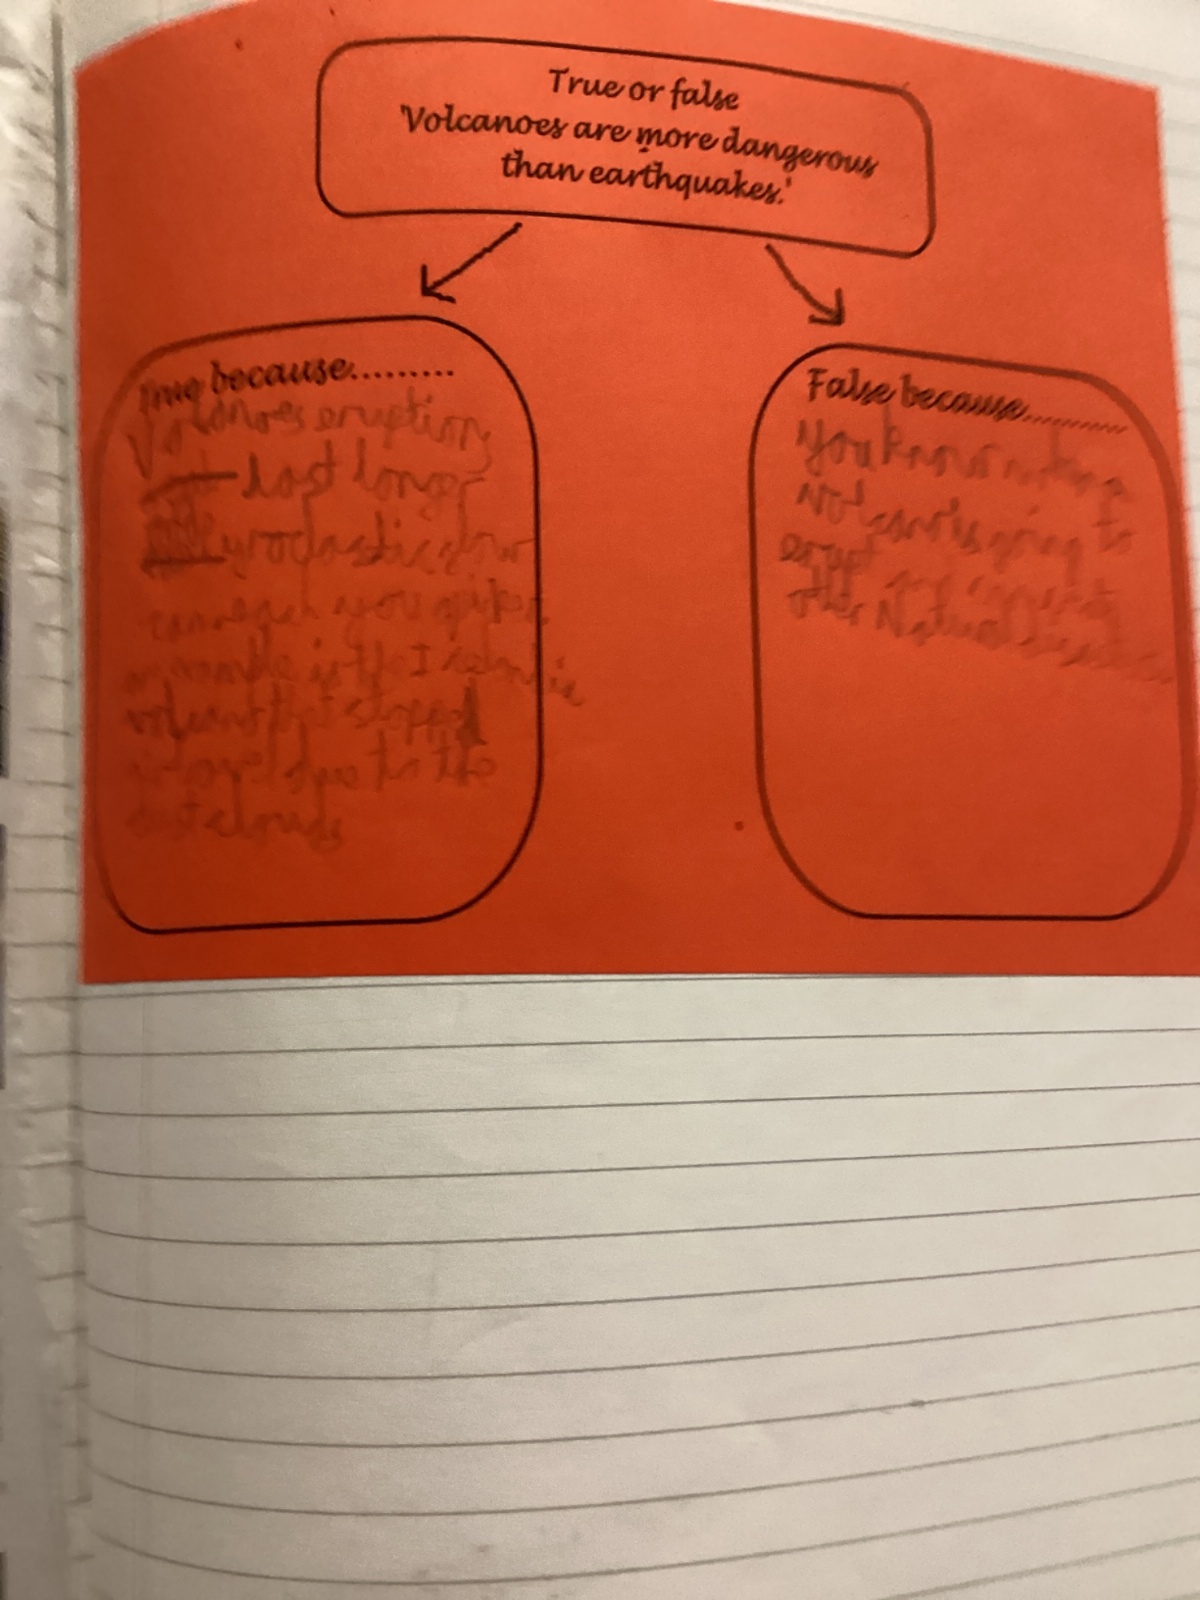 True or false
'Volcanoes are more dangerous
than earthquakes.'
True because.........
Volcanoes eruption
last longer
pyroclastic flow
can reach you quiker
example is the Icelandic
volcano that stopped
travel due to the
dust clouds
False because............
You know when a
volcan is going to
erupt and
other Natural